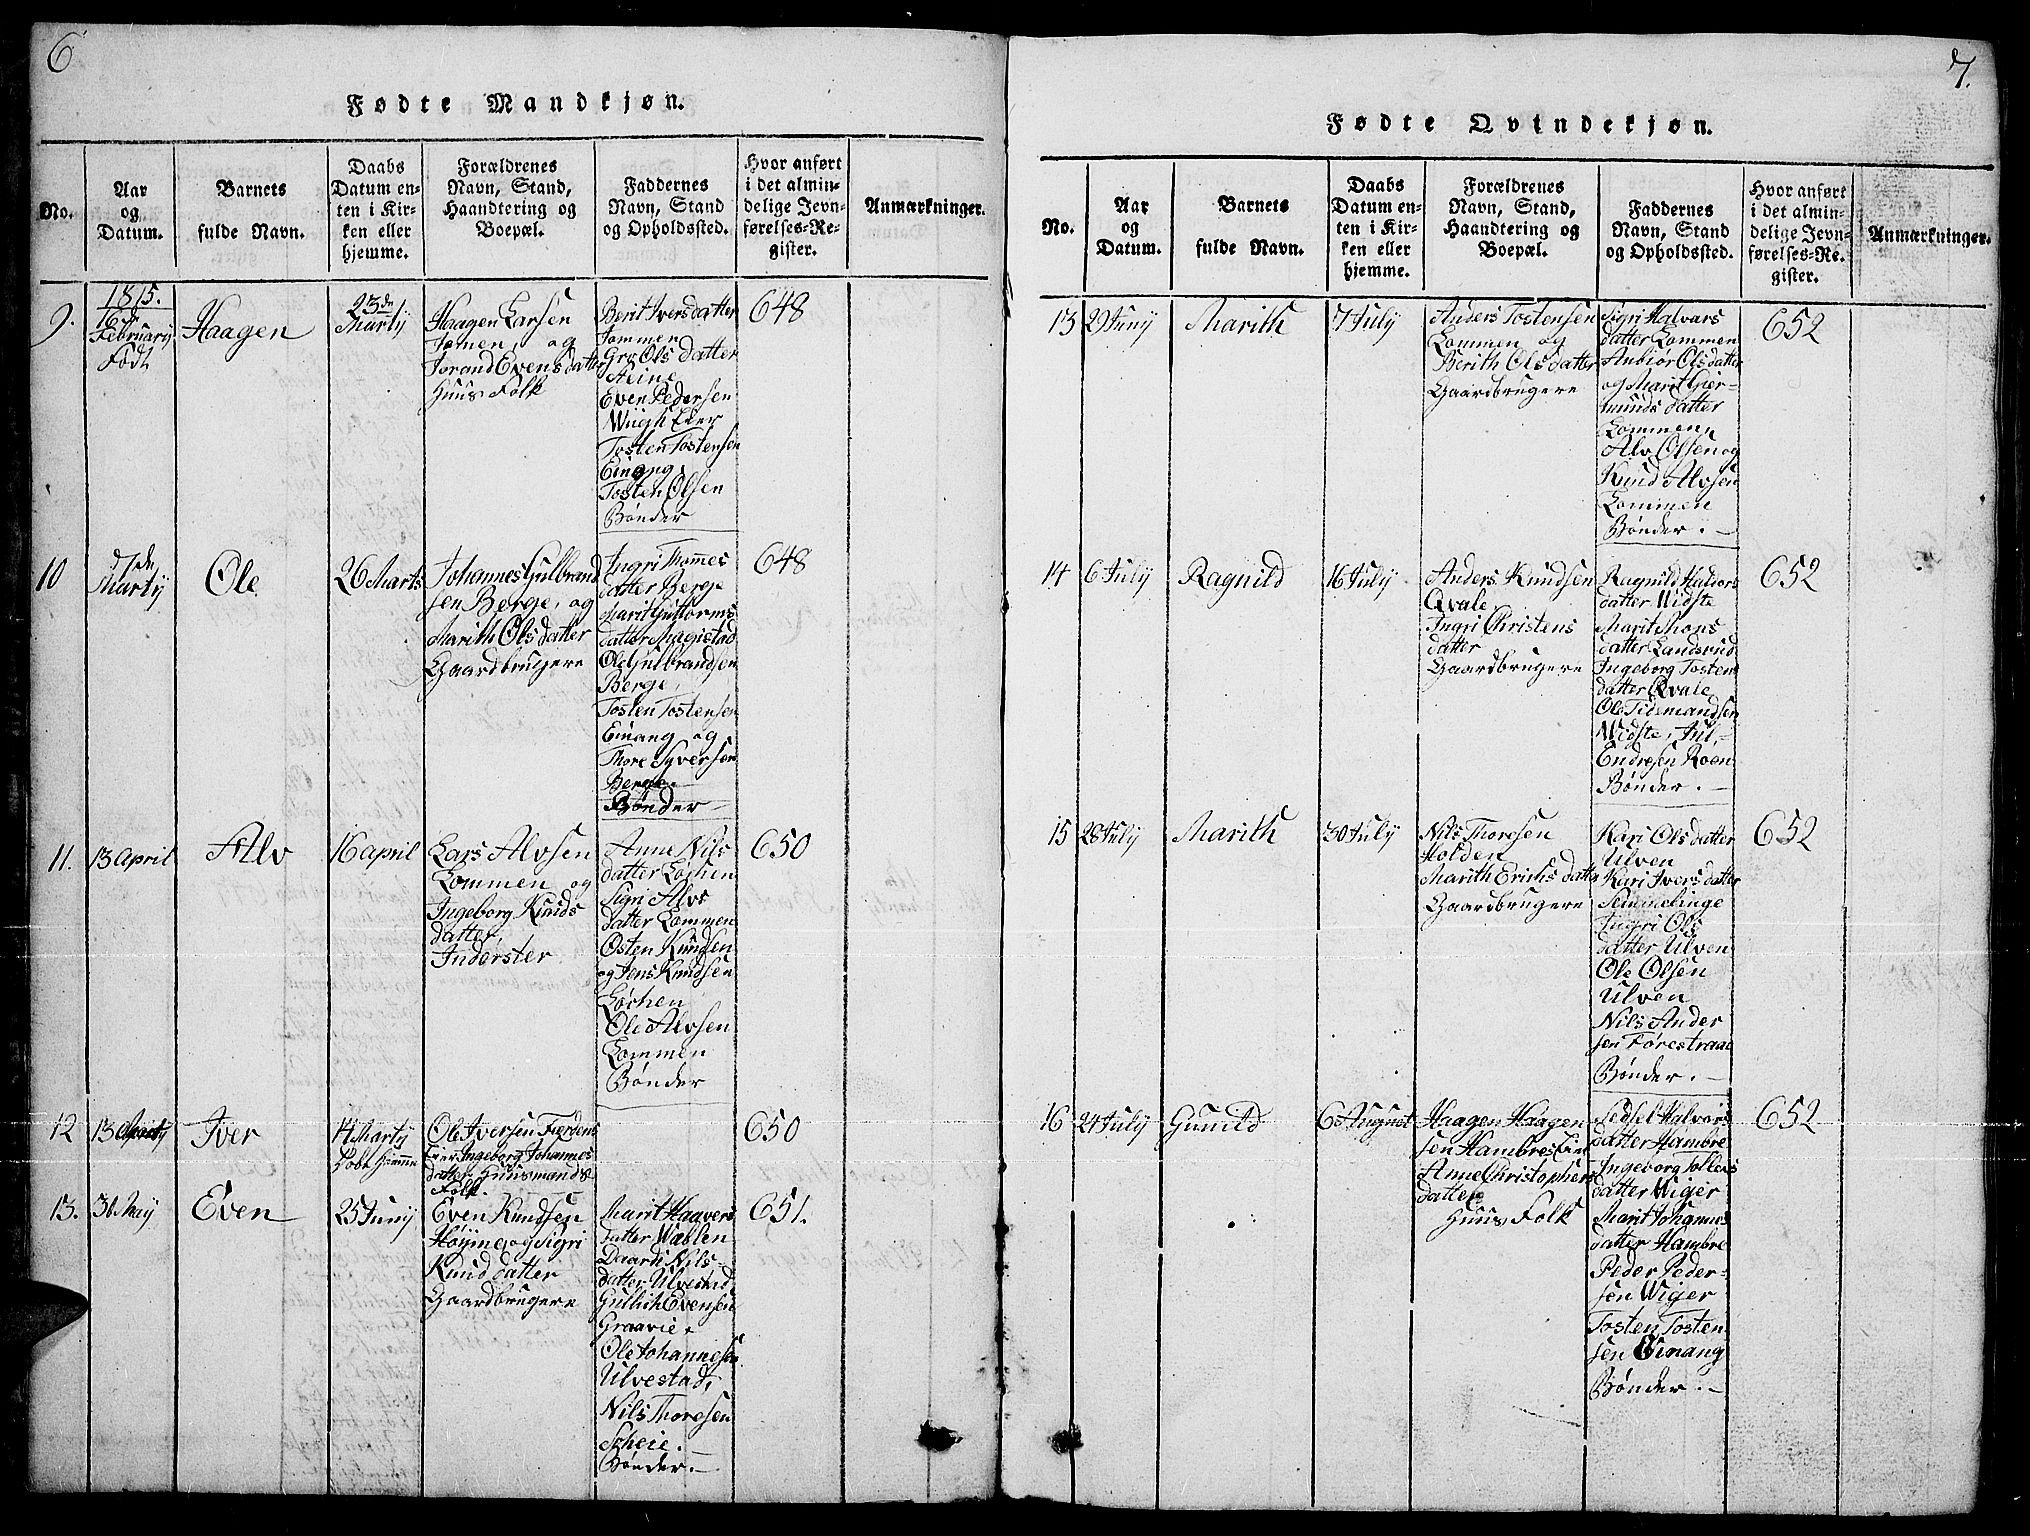 6
Fødte Mandkjøn.
No.
Aar
og
Datum.
Barnets
fulde Navn.
Daabs
Datum en-
ten i Kir-
ken eller
hjemme.
Forældrenes
Navn, Stand,
Haandtering og
Boepæl.
Faddernes
Navn, Stand
og Opholdssted.
Hvor anført
i det almin-
delige Jevn-
førelses-Re-
gister.
Anmærkninger.
9.
1815.
16de
February
Født
Haagen
23de
Marty
Haagen Larsen
Jomen, og
Jorand Evensdatter
Huus Folk
Berit Iversdatter
Jommen
Gro Olsdatter
Steine
Even Pedersen
Tosten Tostensen
Einang
Tosten Olsen
Bønder
648
10
7de
Marty
Ole
26 Marts
Johannes Gulbrand
sen Berge, og
Marith Olsdatter
Gaardbrugere
Ingri Thomes
datter Berge
Marit Guttorms
datter Magistad
Ole Gulbrandsen
Berge,
Tosten Tostensen
Einang og
Thore Syversen
Berge.
Bønder
648
11.
13 April
Alv
16 april
Lars Alvsen
Lommen og
Ingeborg Knuds
datter,
Inderster
Anne Nils
datter Løchen
Sigri Alvs
datter Lommen
Osten Knudsen
og Jens Knudsen
Løchen
Ole Alvsen
Lommen
Bønder
650
12
13
Iver
14 Marty
Døbt Hiemme
Ole Iversen Fierdens
Eier Ingeborg Johannes
datter Huusmands
Folk.
650
13.
31 May
Even
25 Juny
Even Knudsen
Høyme, og Sigri
Knud datter
Gaardbrugere
Marit Haavers
datter Wæblen
Daardi Nils-
datter Ulvestad
Gullich Evensen
Graavie.
Ole Johannesen
Ulvestad,
Nils Thoresen
Scheie.
Bønder.
651.
7.
Fødte Qvindekjøn.
No.
Aar
og
Datum.
Barnets
fulde Navn.
Daabs
Datum en-
ten i Kir-
ken eller
hjemme.
Forældrenes
Navn, Stand,
Haandtering og
Boepæl.
Faddernes
Navn, Stand
og Opholdssted.
Hvor anført
i det almin-
delige Jevn-
førelses-Re-
gister.
Anmærkninger.
13
29 Juny
Marith
7 July
Anders Tostensen
Lommen og
Berith Olsdatter
Gaardbrugere
Sigri Halvars
datter Lommen
Anbiør Olsdatter
og Marit Gier-
munds datter
Lommen,
Alv Olsen og
Knud Alvsen
Lommen
Bønder.
652
14
6 July
Ragnild
16 July
Anders Knudsen
Qvale
Ingri Christens
datter
Gaardbrugere
Ragnild Halvors
datter Widste
Marit Mons
datter Landsrud
Ingeborg Tostens
datter Qvale
Ole Tidemandsen
Widste, Jul.-
Endresen Roen
Bønder.
652
15
28 July
Marith
30 July
Nils Thoresen
Holden
Marith Erichsdatter
Gaardbrugere
Kari Olsdatter
Ulven
Kari Iversdatter
Semmelinge
Ingri Ols
datter Ulven
Ole Olsen
Ulven
Nils Ander
sen Førestraae
Bønder.
652
16
24 July
Gunild
6 August
Haagen Haagen
sen Hambres Eier
Anne Christophers
datter
Huus Folk
Sedsel Halvors
datter Hambre
Ingeborg Tollevs
datter Wiger
Marit Johannes
datter Hambre
Peder Peder-
sen Wiger
Tosten Tosten-
sen Einang
Bønder.
652